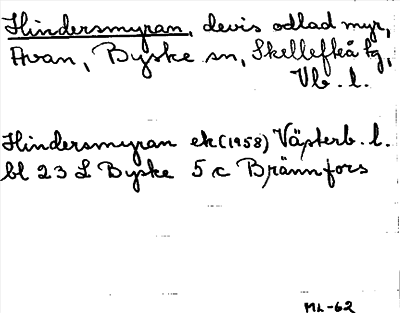 Hindersmyran, devis odlad myr,
Avan, Byske sn, Skellefteå tg,
Vb. l.
Hindersmyran ek (1958) Västerb. l.
bl 23 L Byske 5 c Brännfors
ML-62